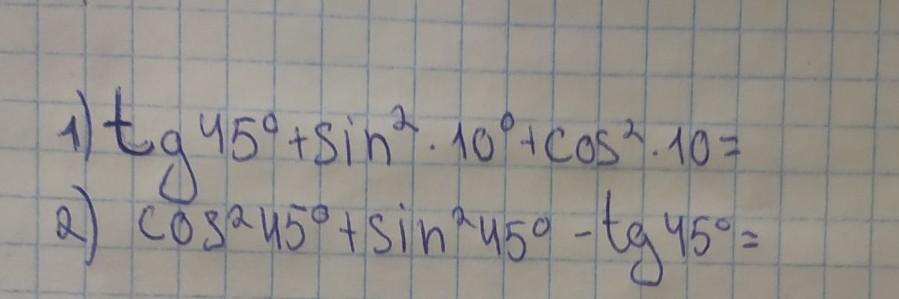 1) tg 45° + sin² · 10° + cos² · 10 =
2) cos² 45° + sin² 45° - tg 45° =